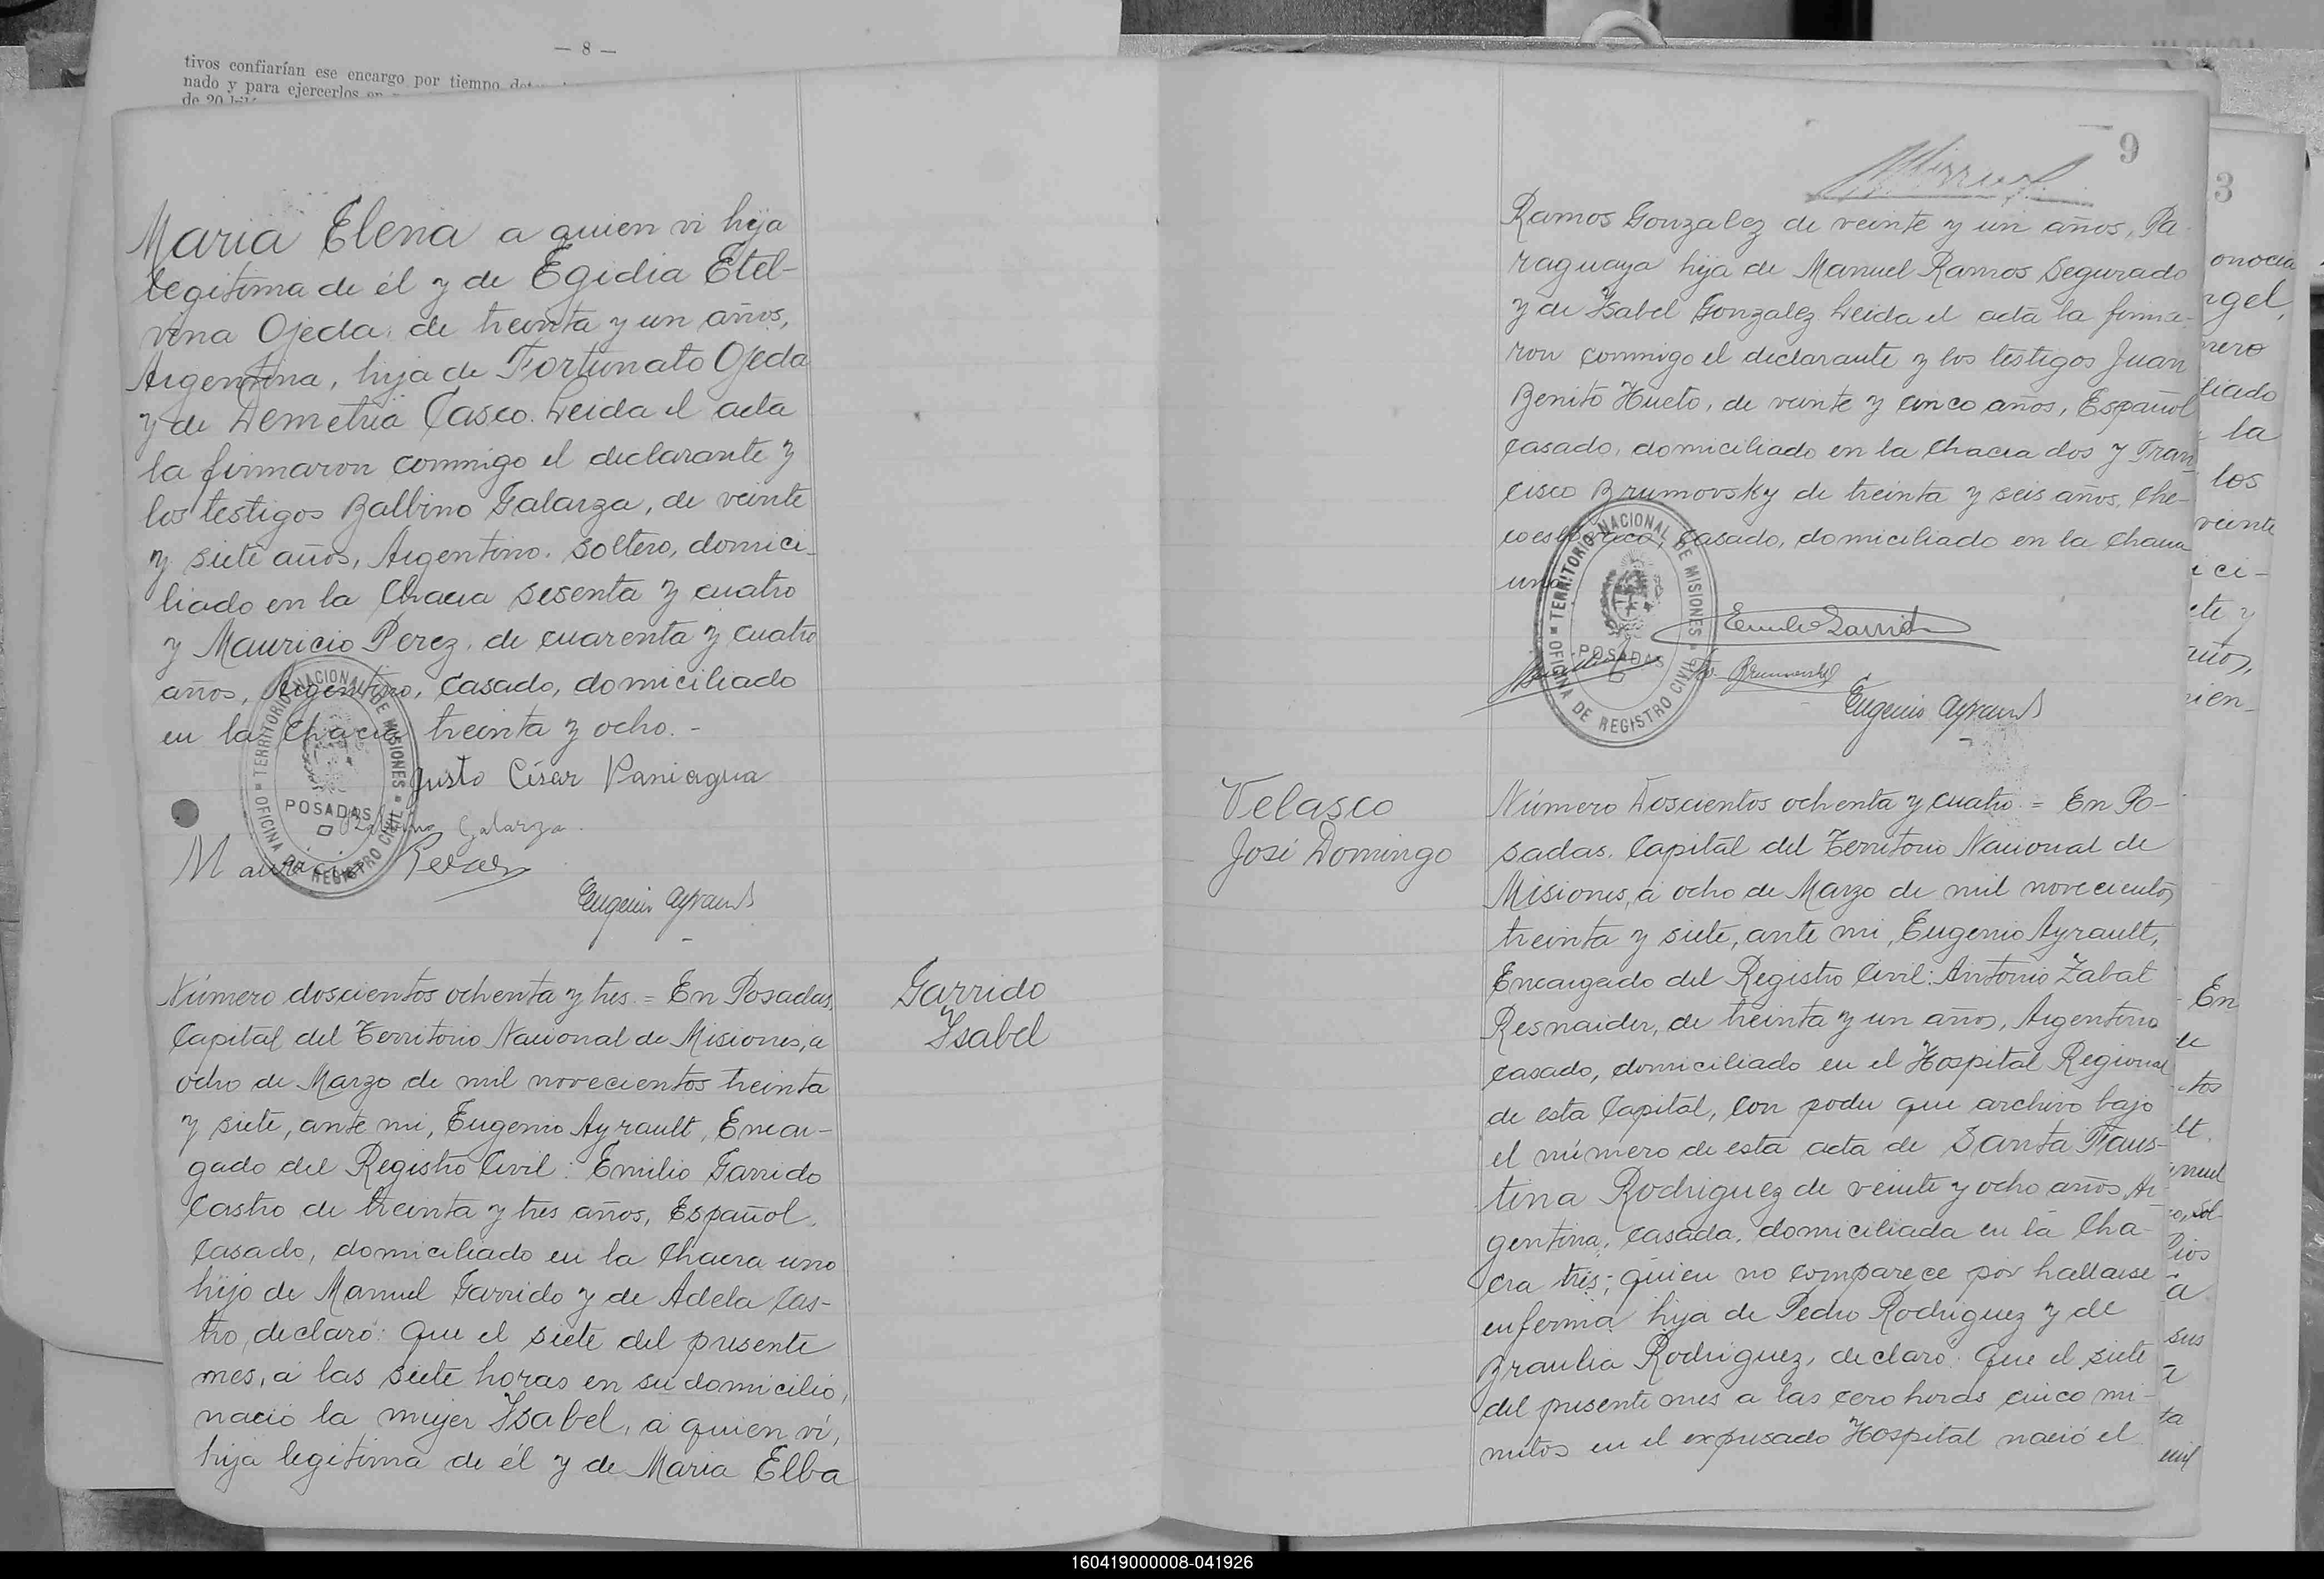 — 8 —
tivos confiarían ese encargo por tiempo
nado y para ejercerlos en
de 20
Maria Elena a quien vi hija
legitima de él y de Egidia Etel-
vina Ojeda, de treinta y un años,
Argentina, hija de Fortunato Ojeda
y de Demetria Casco. Leida el acta
la firmaron conmigo el declarante y
los testigos Balbino Galarza, de veinte
y siete años, Argentino, soltero, domici-
liado en la Chacra sesenta y cuatro
y Mauricio Perez, de cuarenta y cuatro
años, Argentino, casado, domiciliado
en la Chacra treinta y ocho. -
Justo César Paniagua
Balbino Galarza
Mauricio Perez
Eugenio Ayrault
TERRITORIO NACIONAL DE MISIONES
POSADAS
OFICINA DE REGISTRO CIVIL
Garrido
Isabel
Número doscientos ochenta y tres = En Posadas,
Capital del Territorio Nacional de Misiones, a
ocho de Marzo de mil novecientos treinta
y siete, ante mi, Eugenio Ayrault, Encar-
gado del Registro Civil: Emilio Garrido
Castro de treinta y tres años, Español,
casado, domiciliado en la Chacra uno
hijo de Manuel Garrido y de Adela Cas-
tro, declaró: Que el siete del presente
mes, a las siete horas en su domicilio,
nació la mujer Isabel, a quien vi,
hija legitima de él y de Maria Elba
9
Ramos Gonzalez de veinte y un años, Pa
raguaya hija de Manuel Ramos Segurado
y de Isabel Gonzalez Leida el acta la firma-
ron conmigo el declarante y los testigos Juan
Benito Hueto, de veinte y cinco años, Español
casado, domiciliado en la Chacra dos y Fran
cisco Brumovsky de treinta y seis años, Che-
coeslovaco, casado, domiciliado en la Chacra
uno
Emilio Garrido
Brumovsky
Eugenio Ayrault
TERRITORIO NACIONAL DE MISIONES
POSADAS
OFICINA DE REGISTRO CIVIL
Velasco
José Domingo
Número Doscientos ochenta y cuatro = En Po-
sadas, Capital del Territorio Nacional de
Misiones, a ocho de Marzo de mil novecientos
treinta y siete, ante mi, Eugenio Ayrault,
Encargado del Registro Civil: Antonio Zabat
Resnaider, de treinta y un años, Argentino
casado, domiciliado en el Hospital Regional
de esta Capital, con poder que archivo bajo
el número de esta acta de Santa Faus-
tina Rodriguez de veinte y ocho años Ar
gentina, casada, domiciliada en la Cha-
cra tres; quien no comparece por hallarse
enferma hija de Pedro Rodriguez y de
Braulia Rodriguez, declaró: Que el siete
del presente mes a las cero horas cinco mi-
nutos en el expresado Hospital nació el
3
onocia
ngel,
nero
liado
la
los
veinte
ici-
ete y
años,
ien-
En
de
tos
lt.
sus
a
ta
160419000008-041926